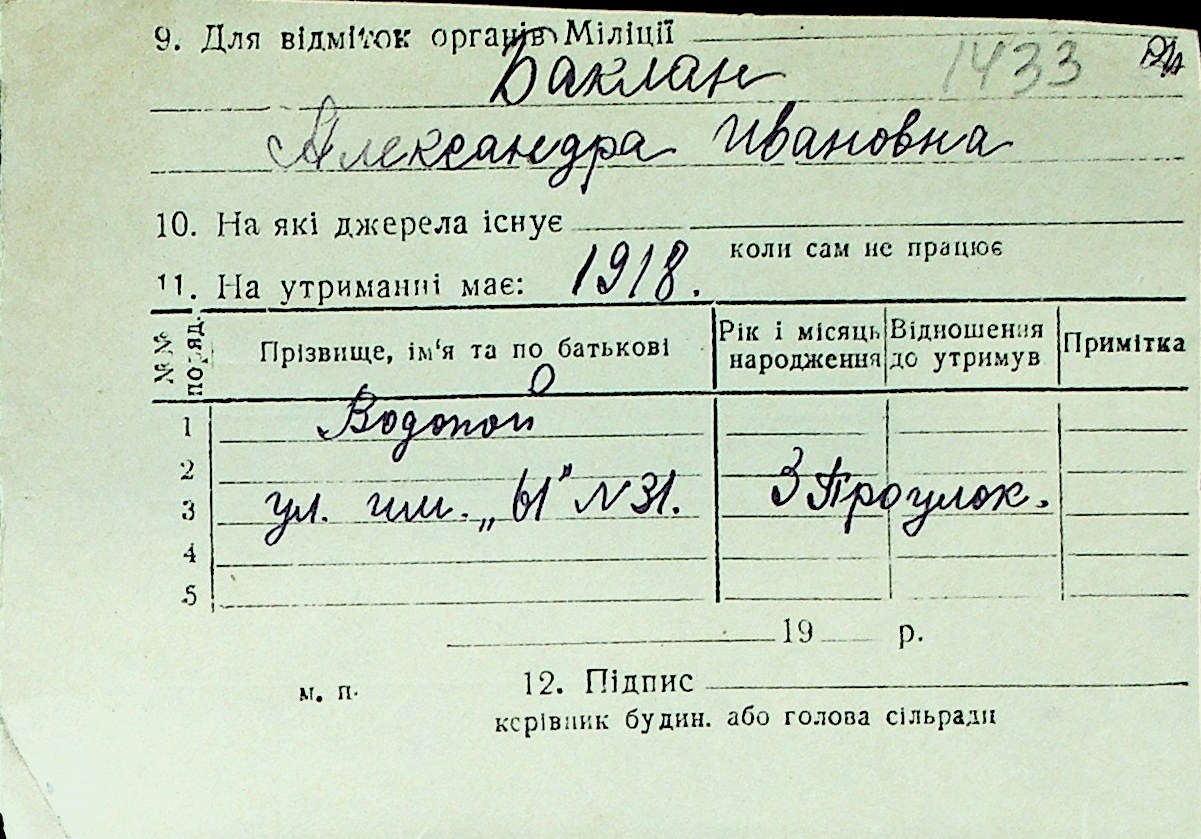 9. Для відміток органів Міліції
1433
Баклан
Александра Ивановна
10. На які джерела існує
коли сам не працює
11. На утриманні має: 1918.
№№ поряд.
Прізвище, ім'я та по батькові
Рік і місяць народження
Відношення до утримув
Примітка
1 Водопой
2
3 ул. им. „61" N 31. 3 Проулок.
4
5
19 р.
м. п.
12. Підпис
керівник будин. або голова сільради